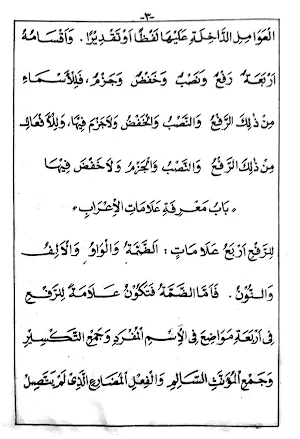 -٣-
العَوَامِلِ الدَّاخِلَةِ عَلَيْهَا لَفْظًا أَوْ تَقْدِيْرًا. وَأَقْسَامُهُ
أَرْبَعَةٌ رَفْعٌ وَنَصْبٌ وَخَفْضٌ وَجَزْمٌ، فَلِلْأَسْمَاءِ
مِنْ ذٰلِكَ الرَّفْعُ وَالنَّصْبُ وَالْخَفْضُ وَلَاجَزْمَ فِيْهَا، وَلِلْأَفْعَالِ
مِنْ ذٰلِكَ الرَّفْعُ وَالنَّصْبُ وَالْجَزْمُ وَلَاخَفْضَ فِيْهَا
بَابُ مَعْرِفَةِ عَلَامَاتِ الْإِعْرَابِ
لِلرَّفْعِ أَرْبَعُ عَلَامَاتٍ: اَلضَّمَّةُ وَالْوَاوُ وَالْأَلِفُ
وَالنُّوْنُ. فَأَمَّا الضَّمَّةُ فَتَكُوْنُ عَلَامَةً لِلرَّفْعِ
فِى أَرْبَعَةِ مَوَاضِعَ فِى الْاِسْمِ الْمُفْرَدِ وَجَمْعِ التَّكْسِيْرِ
وَجَمْعِ الْمُؤَنَّثِ السَّالِمِ وَالْفِعْلِ الْمُضَارِعِ الَّذِى لَمْ يَتَّصِلْ